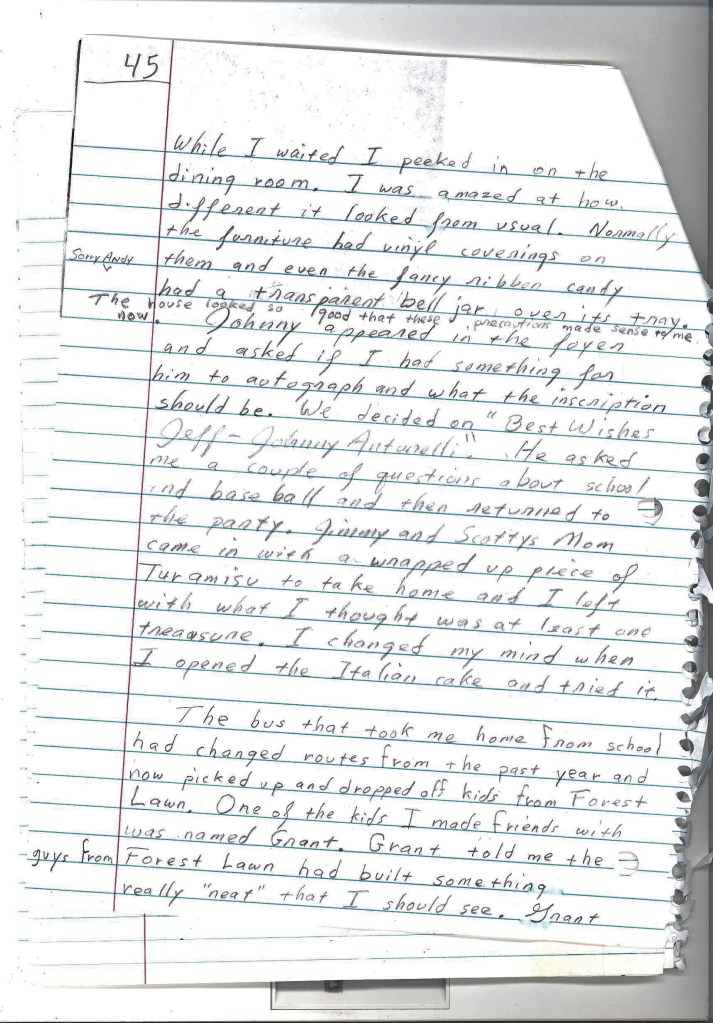 45
While I waited I peeked in on the
dining room. I was amazed at how
different it looked from usual. Normally
the furniture had vinyl coverings on
Sorry Andy
them and even the fancy ribbon candy
had a transparent bell jar over its tray.
The house looked so good that these precautions made sense to me
now.
Johnny appeared in the foyer
and asked if I had something for
him to autograph and what the inscription
should be. We decided on "Best Wishes
Jeff - Johnny Antonelli". He asked
me a couple of questions about school
and base ball and then returned to
the party. Jimmy and Scottys Mom
came in with a wrapped up piece of
Turamisu to take home and I left
with what I thought was at least one
treasure. I changed my mind when
I opened the Italian cake and tried it.
The bus that took me home from school
had changed routes from the past year and
now picked up and dropped off kids from Forest
Lawn. One of the kids I made friends with
was named Grant. Grant told me the
guys from Forest Lawn had built something
really "neat" that I should see. Grant